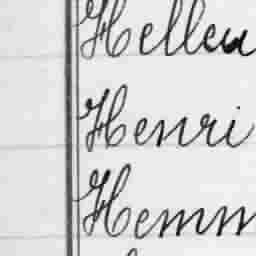 Hellea
Henri
Hemm